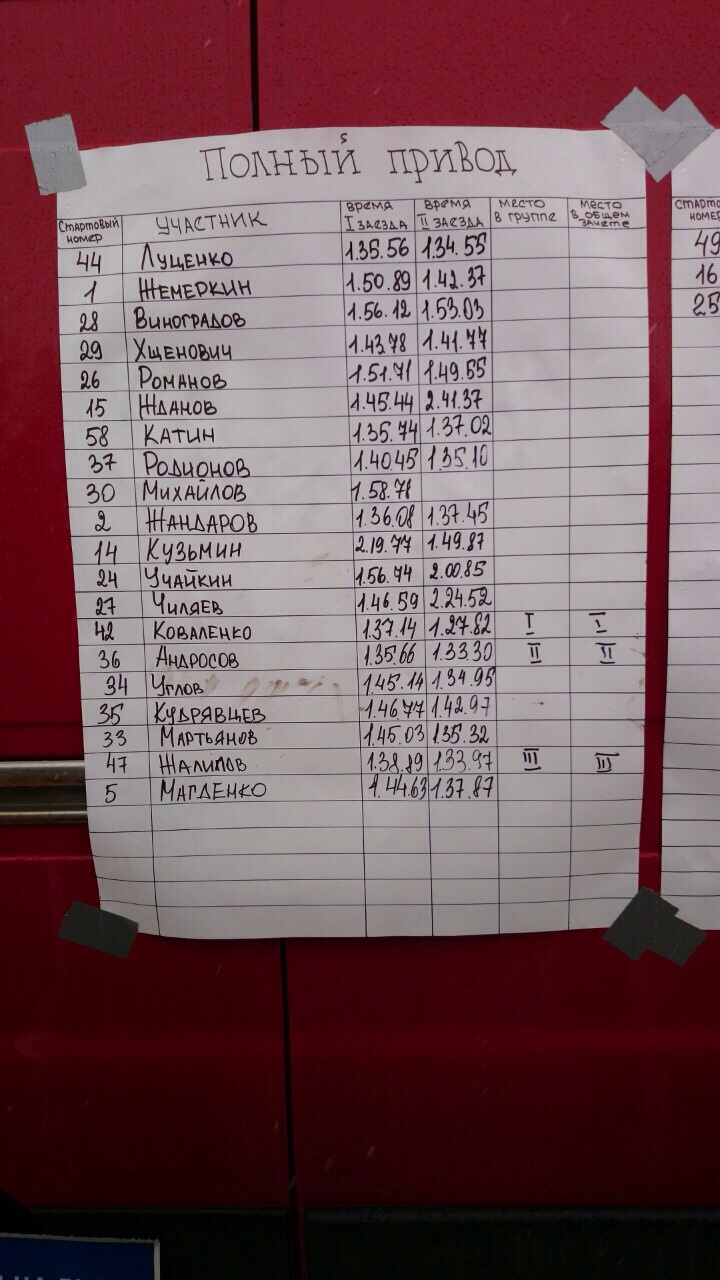 Полный привод
Стартовый номер Участник время I заезда время II заезда место в группе место в общем зачете
44 Луценко 1.35.56 1.34.55
1 Жемеркин 1.50.89 1.42.37
28 Виноградов 1.56.12 1.53.03
29 Хщенович 1.43.78 1.41.77
26 Романов 1.51.71 1.49.55
15 Жданов 1.45.44 2.41.37
58 Катин 1.35.74 1.37.02
37 Родионов 1.40.45 1.35.10
30 Михайлов 1.58.78
2 Жандаров 1.36.08 1.37.45
14 Кузьмин 2.19.77 1.49.87
24 Учайкин 1.56.74 2.00.85
27 Чиляев 1.46.59 2.24.52
42 Коваленко 1.37.14 1.27.82 I I
36 Андросов 1.35.66 1.33.30 II II
34 Углов 1.45.14 1.34.95
35 Кудрявцев 1.46.77 1.42.97
33 Мартьянов 1.45.03 1.35.32
47 Жалилов 1.38.89 1.33.97 III III
5 Магденко 1.44.63 1.37.87
49
16
25